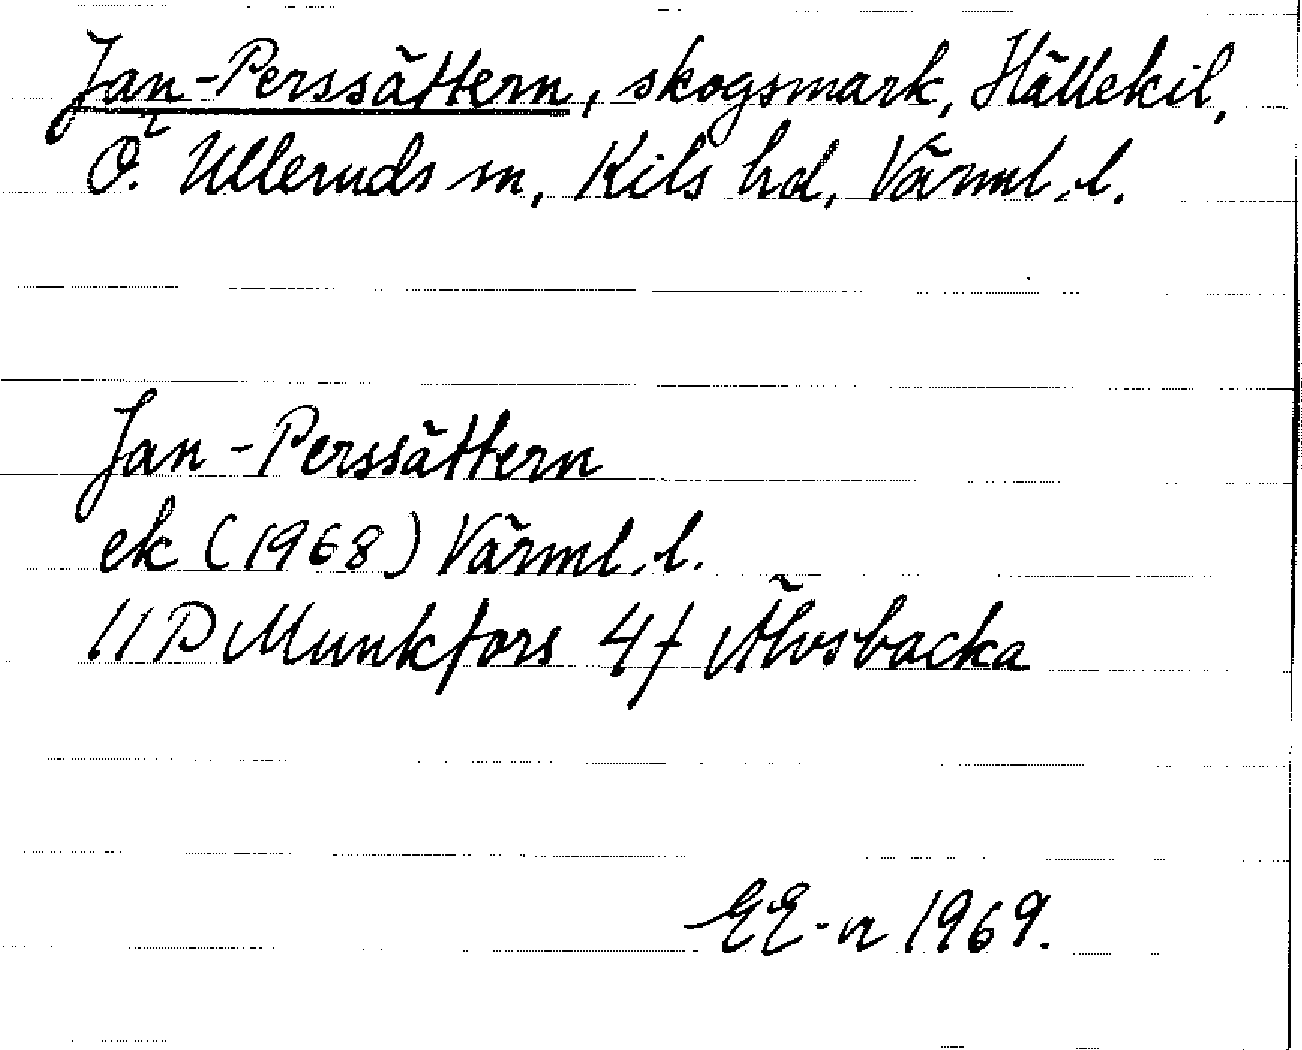 Jan-Perssättern, skogsmark, Hällekil,
Ö. Ulleruds sn, Kils hd, Värml. l.
Jan-Perssättern
ek (1968) Värml. l.
11 D Munkfors 4f Älvsbacka
EE-n 1969.